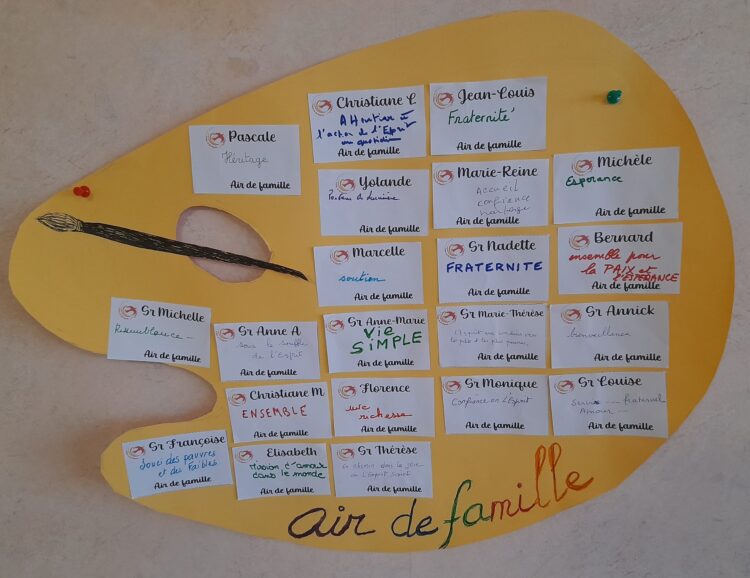 Pascale
Héritage
Air de famille
Christiane L
Attentive à
l'action de l'Esprit
au quotidien
Air de famille
Jean-Louis
Fraternité
Air de famille
Yolande
Porteur de Lumière
Air de famille
Marie-Reine
Accueil
confiance
Air de famille
Michèle
Espérance
Air de famille
Marcelle
soutien
Air de famille
Sr Nadette
FRATERNITE
Air de famille
Bernard
ensemble pour
la PAIX et
l'ESPERANCE
Air de famille
Sr Michelle
Ressemblance -
Air de famille
Sr Anne A
sous le souffle
de l'Esprit
Air de famille
Sr Anne-Marie
VIE
SIMPLE
Air de famille
Sr Marie-Thérèse
Air de famille
Sr Annick
bienveillance
Air de famille
Christiane M
ENSEMBLE
Air de famille
Florence
une
richesse
Air de famille
Sr Monique
Confiance en l'Esprit
Air de famille
Sr Louise
Service --- fraternel
Amour ---
Air de famille
Sr Françoise
Souci des pauvres
et des faibles
Air de famille
Elisabeth
Mission d'amour
dans le monde
Air de famille
Sr Thérèse
En chemin dans la joie
de l'Esprit Saint
Air de famille
air de famille